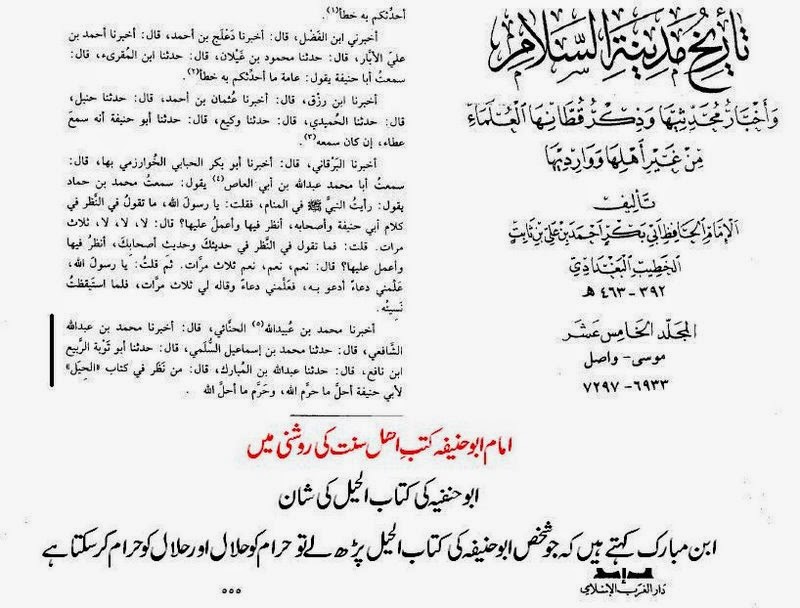 أحدثكم به خطأ(١).
أخبرني ابن الفَضْل، قال: أخبرنا دَعْلَج بن أحمد، قال: أخبرنا أحمد بن
عليّ الأبّار، قال: حدثنا محمود بن غَيْلان، قال: حدثنا ابن المقرىء، قال:
سمعتُ أبا حنيفة يقول: عامة ما أحدّثكم به خطأ(٢).
أخبرنا ابن رزق، قال: أخبرنا عُثمان بن أحمد، قال: حدثنا حنبل،
قال: حدثنا الحُميدي، قال: حدثنا وكيع، قال: حدثنا أبو حنيفة أنه سمعَ
عطاء، إن كان سمعه(٣).
أخبرنا البَرْقاني، قال: أخبرنا أبو بكر الحبابي الخُوارزمي بها، قال:
سمعتُ أبا محمد عبدالله بن أبي العاص(٤) يقول: سمعتُ محمد بن حماد
يقول: رأيتُ النبيَّ ﷺ في المنام، فقلت: يا رسول الله، ما تقولُ في النَّظر في
كلام أبي حنيفة وأصحابه، أنظر فيها وأعملُ عليها؟ قال: لا، لا، لا، ثلاث
مرات. قلت: فما تقول في النَّظر في حديثكَ وحديث أصحابِكَ، أنظرُ فيها
وأعمل عليها؟ قال: نعم، نعم، نعم ثلاث مرَّات. ثم قلتُ: يا رسول الله،
علِّمني دعاءً أدعو به، فعلَّمني دعاءً وقاله لي ثلاث مرَّات، فلما استيقظتُ
نَسِيتُه.
أخبرنا محمد بن عُبيدالله(٥) الحنَّائي، قال: أخبرنا محمد بن عبدالله
الشَّافعي، قال: حدثنا محمد بن إسماعيل السُّلَمي، قال: حدثنا أبو تَوْبة الرَّبيع
ابن نافع، قال: حدثنا عبدالله بن المُبارك، قال: من نَظَر في كتاب «الحِيَل»
لأبي حنيفة أحلَّ ما حرَّم الله، وحَرَّم ما أحلَّ الله
تاريخ مدينة السلام
وأخبار محدثيها وذكر قطانها العلماء
من غير أهلها ووارديها
تأليف
الإمام الحافظ أبي بكر أحمد بن علي بن ثابت
الخطيب البغدادي
٣٩٢ - ٤٦٣ هـ
المجلد الخامس عشر
موسى - واصل
٦٩٣٣ - ٧٢٩٧
امام ابو حنیفہ کتب اھل سنت کی روشنی میں
ابو حنفیہ کی کتاب الحیل کی شان
ابن مبارک کہتے ہیں کہ جو شخص ابو حنیفہ کی کتاب الحیل پڑھ لے تو حرام کو حلال اور حلال کو حرام کر سکتا ہے
دار الغرب الإسلامي